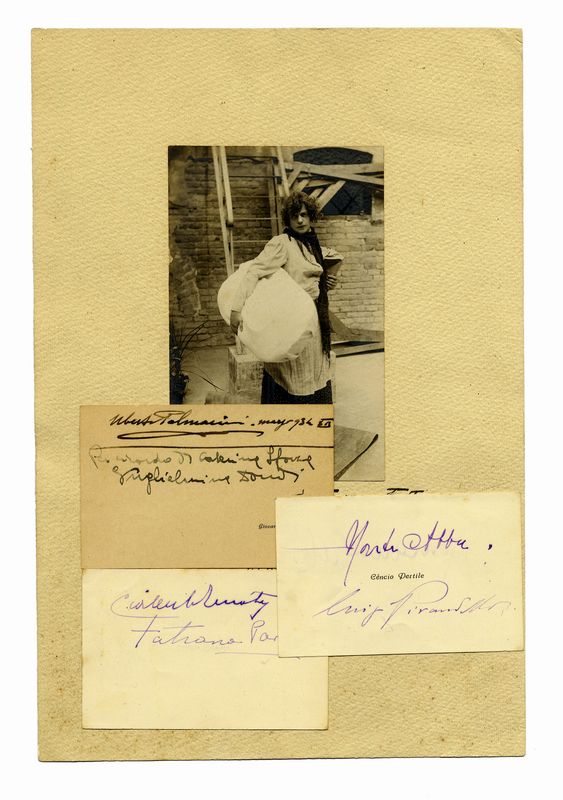 Uberto Palmarini - magg 934 XII
Ricordo di Caterina Sforza
Guglielmina Dondi
Giovan
Marta Abba.
Cèncio Pertile
Luigi Pirandello
Tatiana Pav